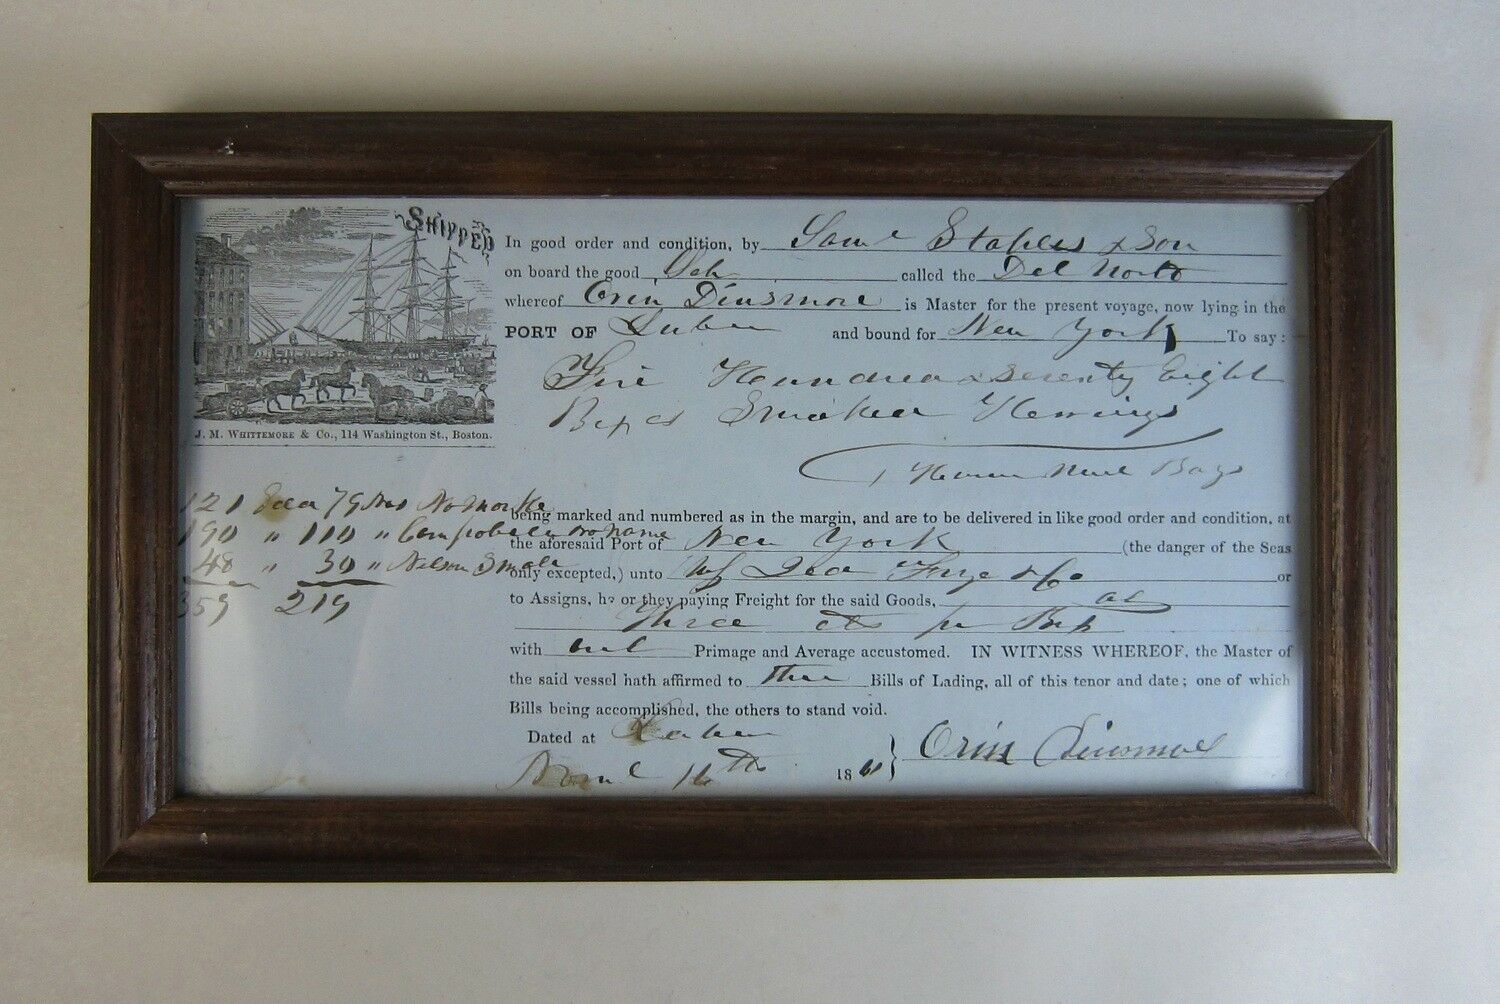 SHIPPED
In good order and condition, by Saml Staples & Son
on board the good Sch called the Del Norte
whereof Orin Dinsmore is Master for the present voyage, now lying in the
PORT OF Lubec and bound for New York To say:
Five Hundred & Seventy Eight
Boxes Smoked Herrings
J. M. WHITTEMORE & Co., 114 Washington St., Boston.
Bags
121 79 No
190 " 110 " no name
48 " 30 " Nelson Small
359 219
being marked and numbered as in the margin, and are to be delivered in like good order and condition, at
the aforesaid Port of New York (the danger of the Seas
only excepted,) unto & Co or
to Assigns, he or they paying Freight for the said Goods, as
Three cts per Box
with out Primage and Average accustomed. IN WITNESS WHEREOF, the Master of
the said vessel hath affirmed to three Bills of Lading, all of this tenor and date; one of which
Bills being accomplished, the others to stand void.
Dated at Lubec
16th 18
Orin Dinsmore